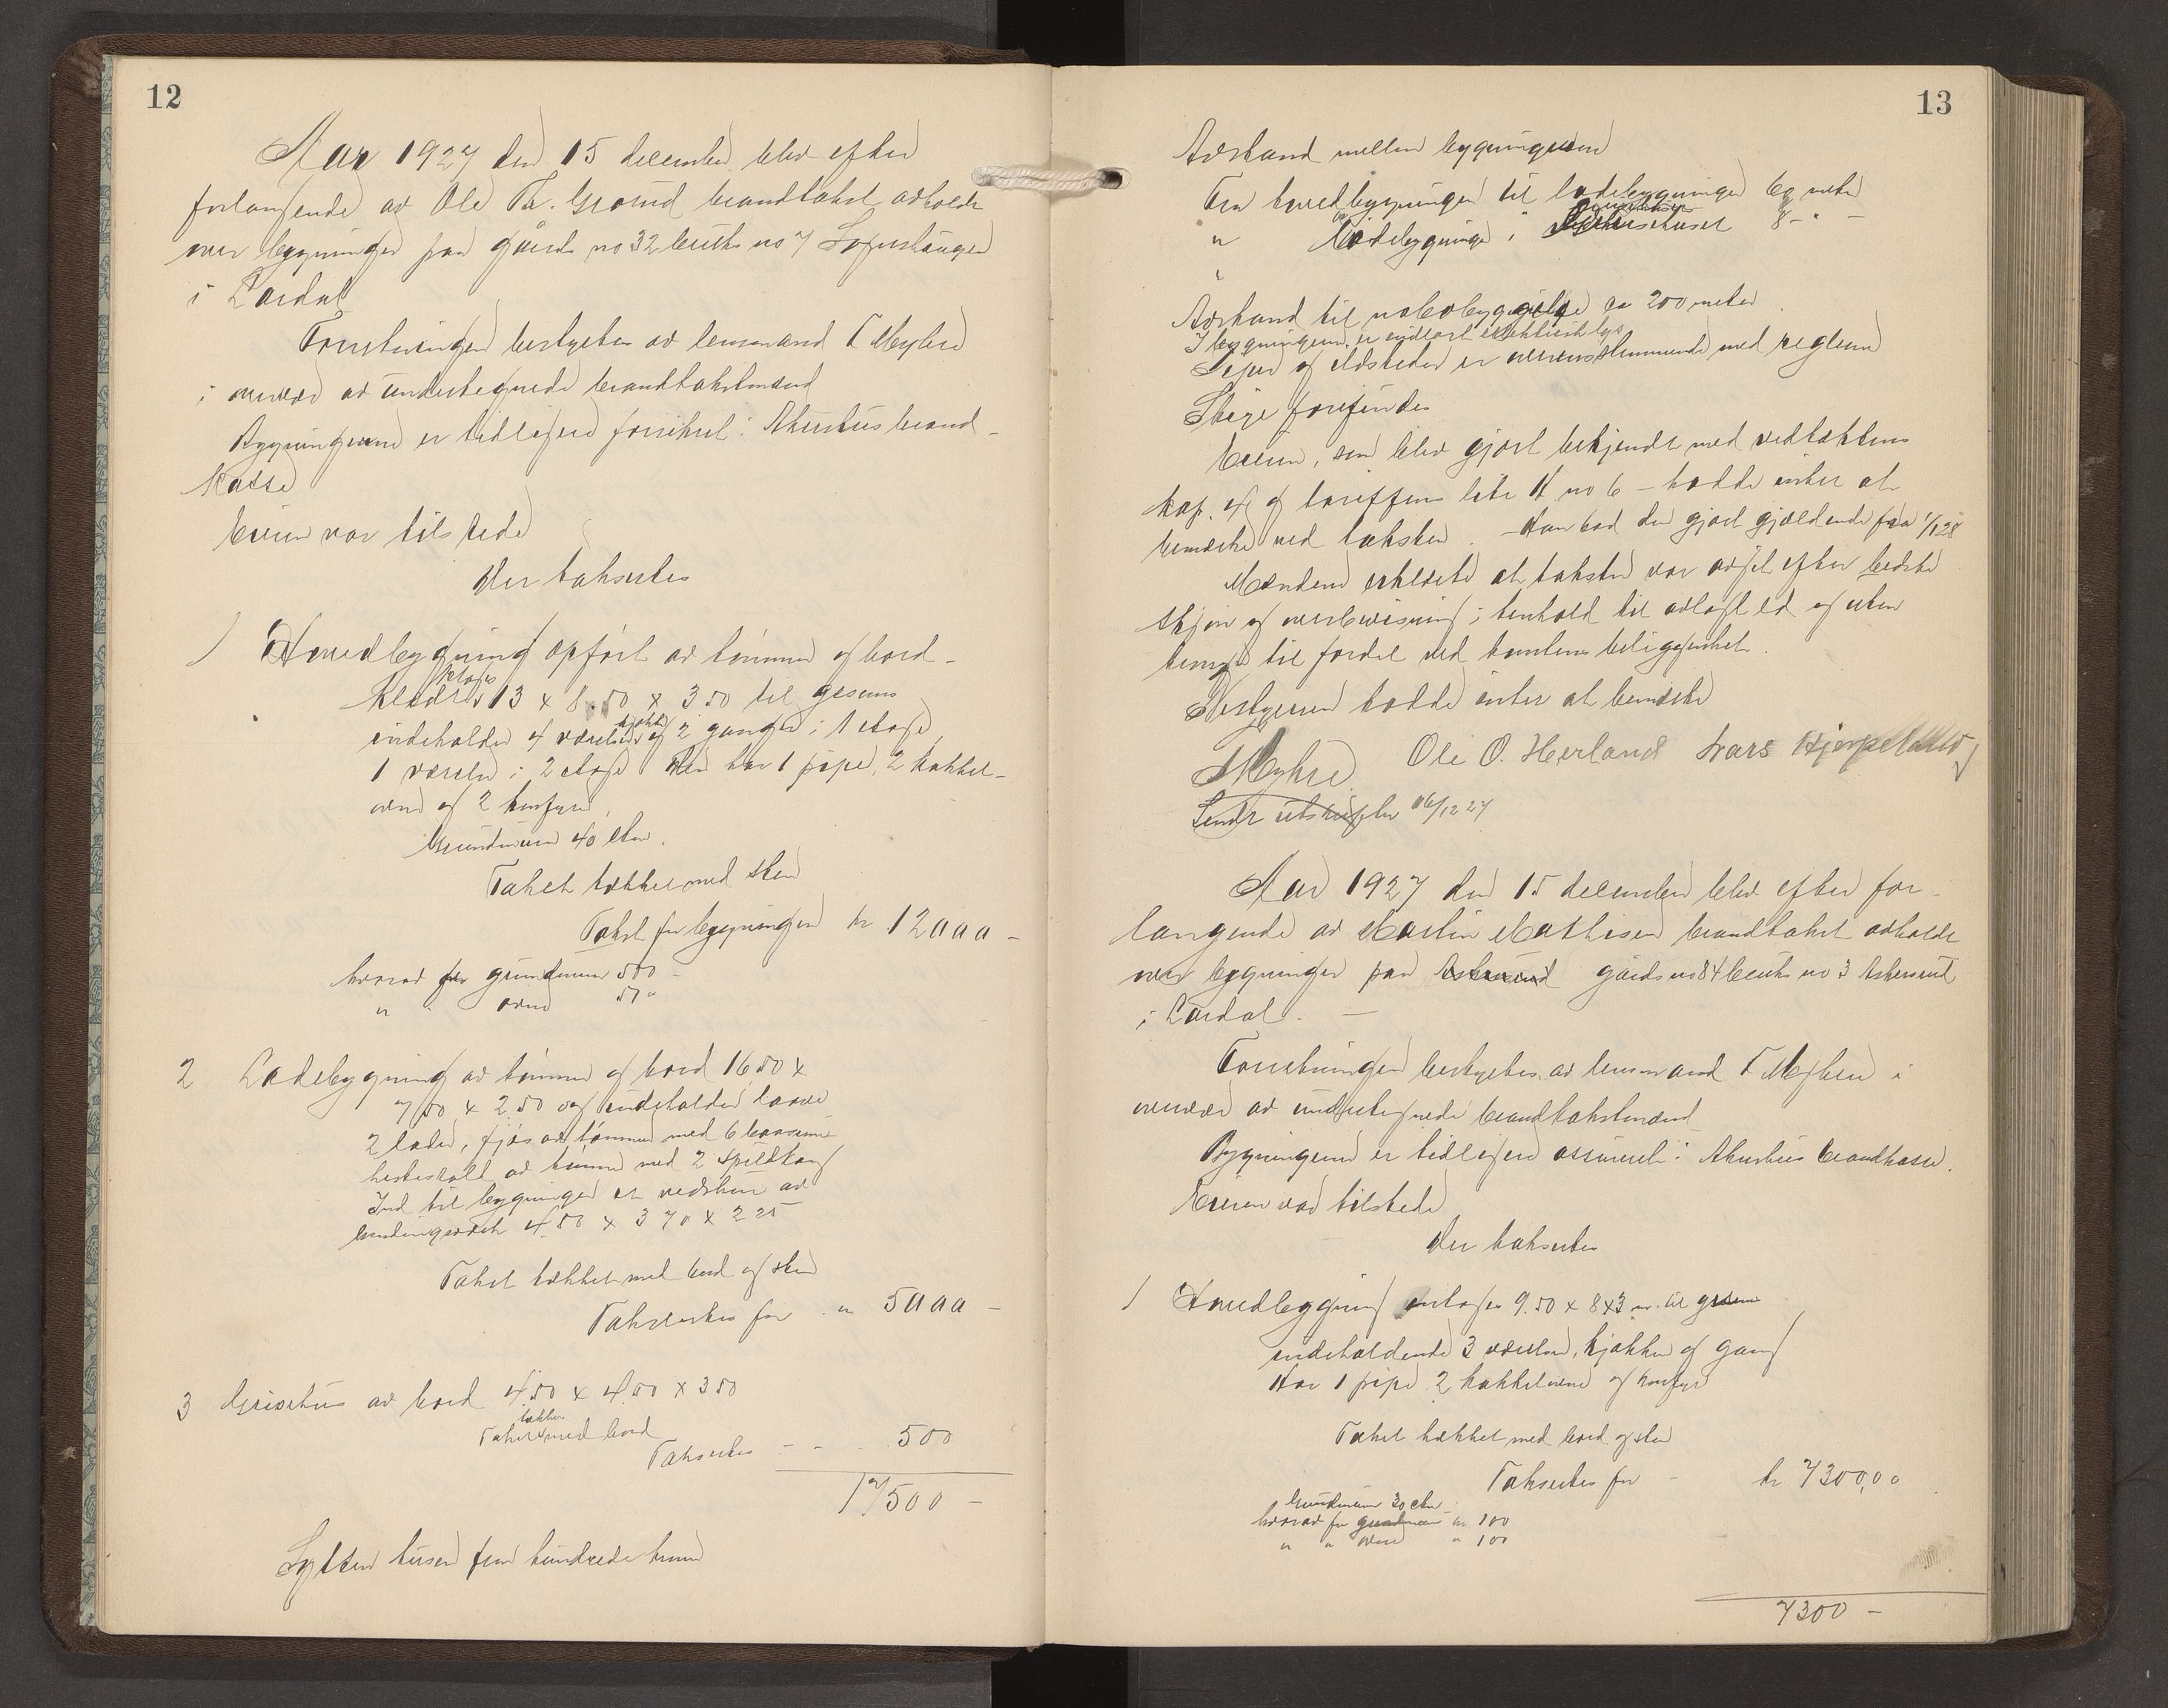 12
Aar 1927 den 15 december blev efter
forlangende av Ole Th. Grorud brandtakst avholdt
over bygninger paa gårds no 32 bruks no 7
i Lardal
Forretningen bestyrtes av lensmand T Myhre
i overvær av undertegnede brandtakstmænd
Bygningerne er tidligere forsikret i Akershus brand-
kasse
Eieren var tilstede
Der taksertes
1 Hovedbygning opført av tømmer og bord-
klædt 1 etages 13 x 8.50 x 3 50 til gesims
indeholder 4 værelser kjøkken og 2 ganger i 1 etage
1 værelse i 2 etage Den har 1 pipe, 2 kakkel-
ovne og 2 komfyrer,
Grundmuren 40 cbm.
Taket tækket med sten
Takst for bygningen kr 12000 -
hvorav for grundmuren 500 -
" " ovne
2 Ladebygning av tømmer og bord 16 50 x
7 50 x 2 50 og indeholder laave
2 lader, fjøs av tømmer med 6 baasrum
hestestald av tømmer med 2 spiltaug
Ind til bygningen er vedskur av
bindingsverk 4 50 x 3 70 x 2 25
Taket tækket med bord og sten
Taksertes for " 5000 -
3 Grisehus av bord 4.50 x 4.50 x 3 50
Taket tækket med bord
Taksertes - - 500
17500 -
Sytten tusen fem hundrede kroner
13
Avstand mellem bygningerne
Fra hovedbygningen til ladebygningen meter
" ladebygningen " 8 - " -
Avstand til nabobyggelse ca 200 meter
I bygningerne er indlagt elektrisk lys
Piper og ildsteder er overensstemmende med reglerne
Stige forefindes
Eieren, som blev gjort bekjendt med vedtæktens
kap. 4 og tariffens litr H no 6 - hadde intet at
bemerke ved taksten. - Han bad den gjort gjældende fra 1/1 28
Mændene erklærte at taksten var avgit efter bedste
skjøn og overbevisning i henhold til avlagt ed og uten
hensyn til fordel ved tomtens beliggenhet.
Bestyreren hadde intet at bemerke
T Myhre Ole O. Herland Lars
Sendt utskrifter 16/12 27
Aar 1927 den 15 december blev efter for-
langende av Martin Mathisen brandtakst avholdt
over bygninger paa gårds no 84 bruks no 3
i Lardal. -
Forretningen bestyrtes av lensmand T Myhre i
overvær av undertegnede brandtakstmænd
Bygningerne er tidligere assurert i Akershus brandkasse.
Eieren var tilstede
Der taksertes
1 Hovedbygning enetages 9.50 x 8 x 3 m. til gesims
indeholdende 3 værelser, kjøkken og gang
Har 1 pipe 2 kakkelovne og komfyr
Taket tækket med bord og sten
Taksertes for - kr 7300,00
Grundmuren 30 cbm
hvorav for grundmuren kr 100
" " ovne " 100
7300 -